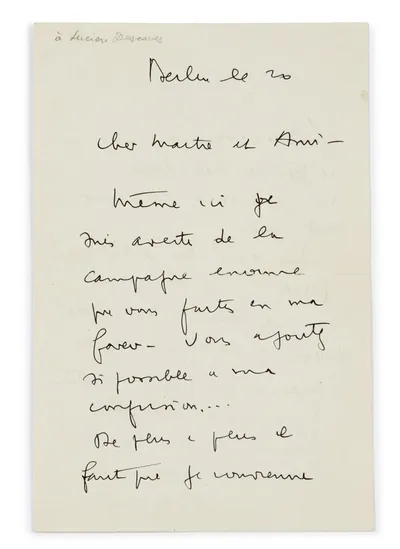 à Lucien Descaves
Berlin le 20
Cher Maitre et Ami –
Même ici je
suis averti de la
campagne enorme
que vous faites en ma
faveur – Vous ajoutez
si possible a ma
confusion....
De plus e plus il
faut que je convienne